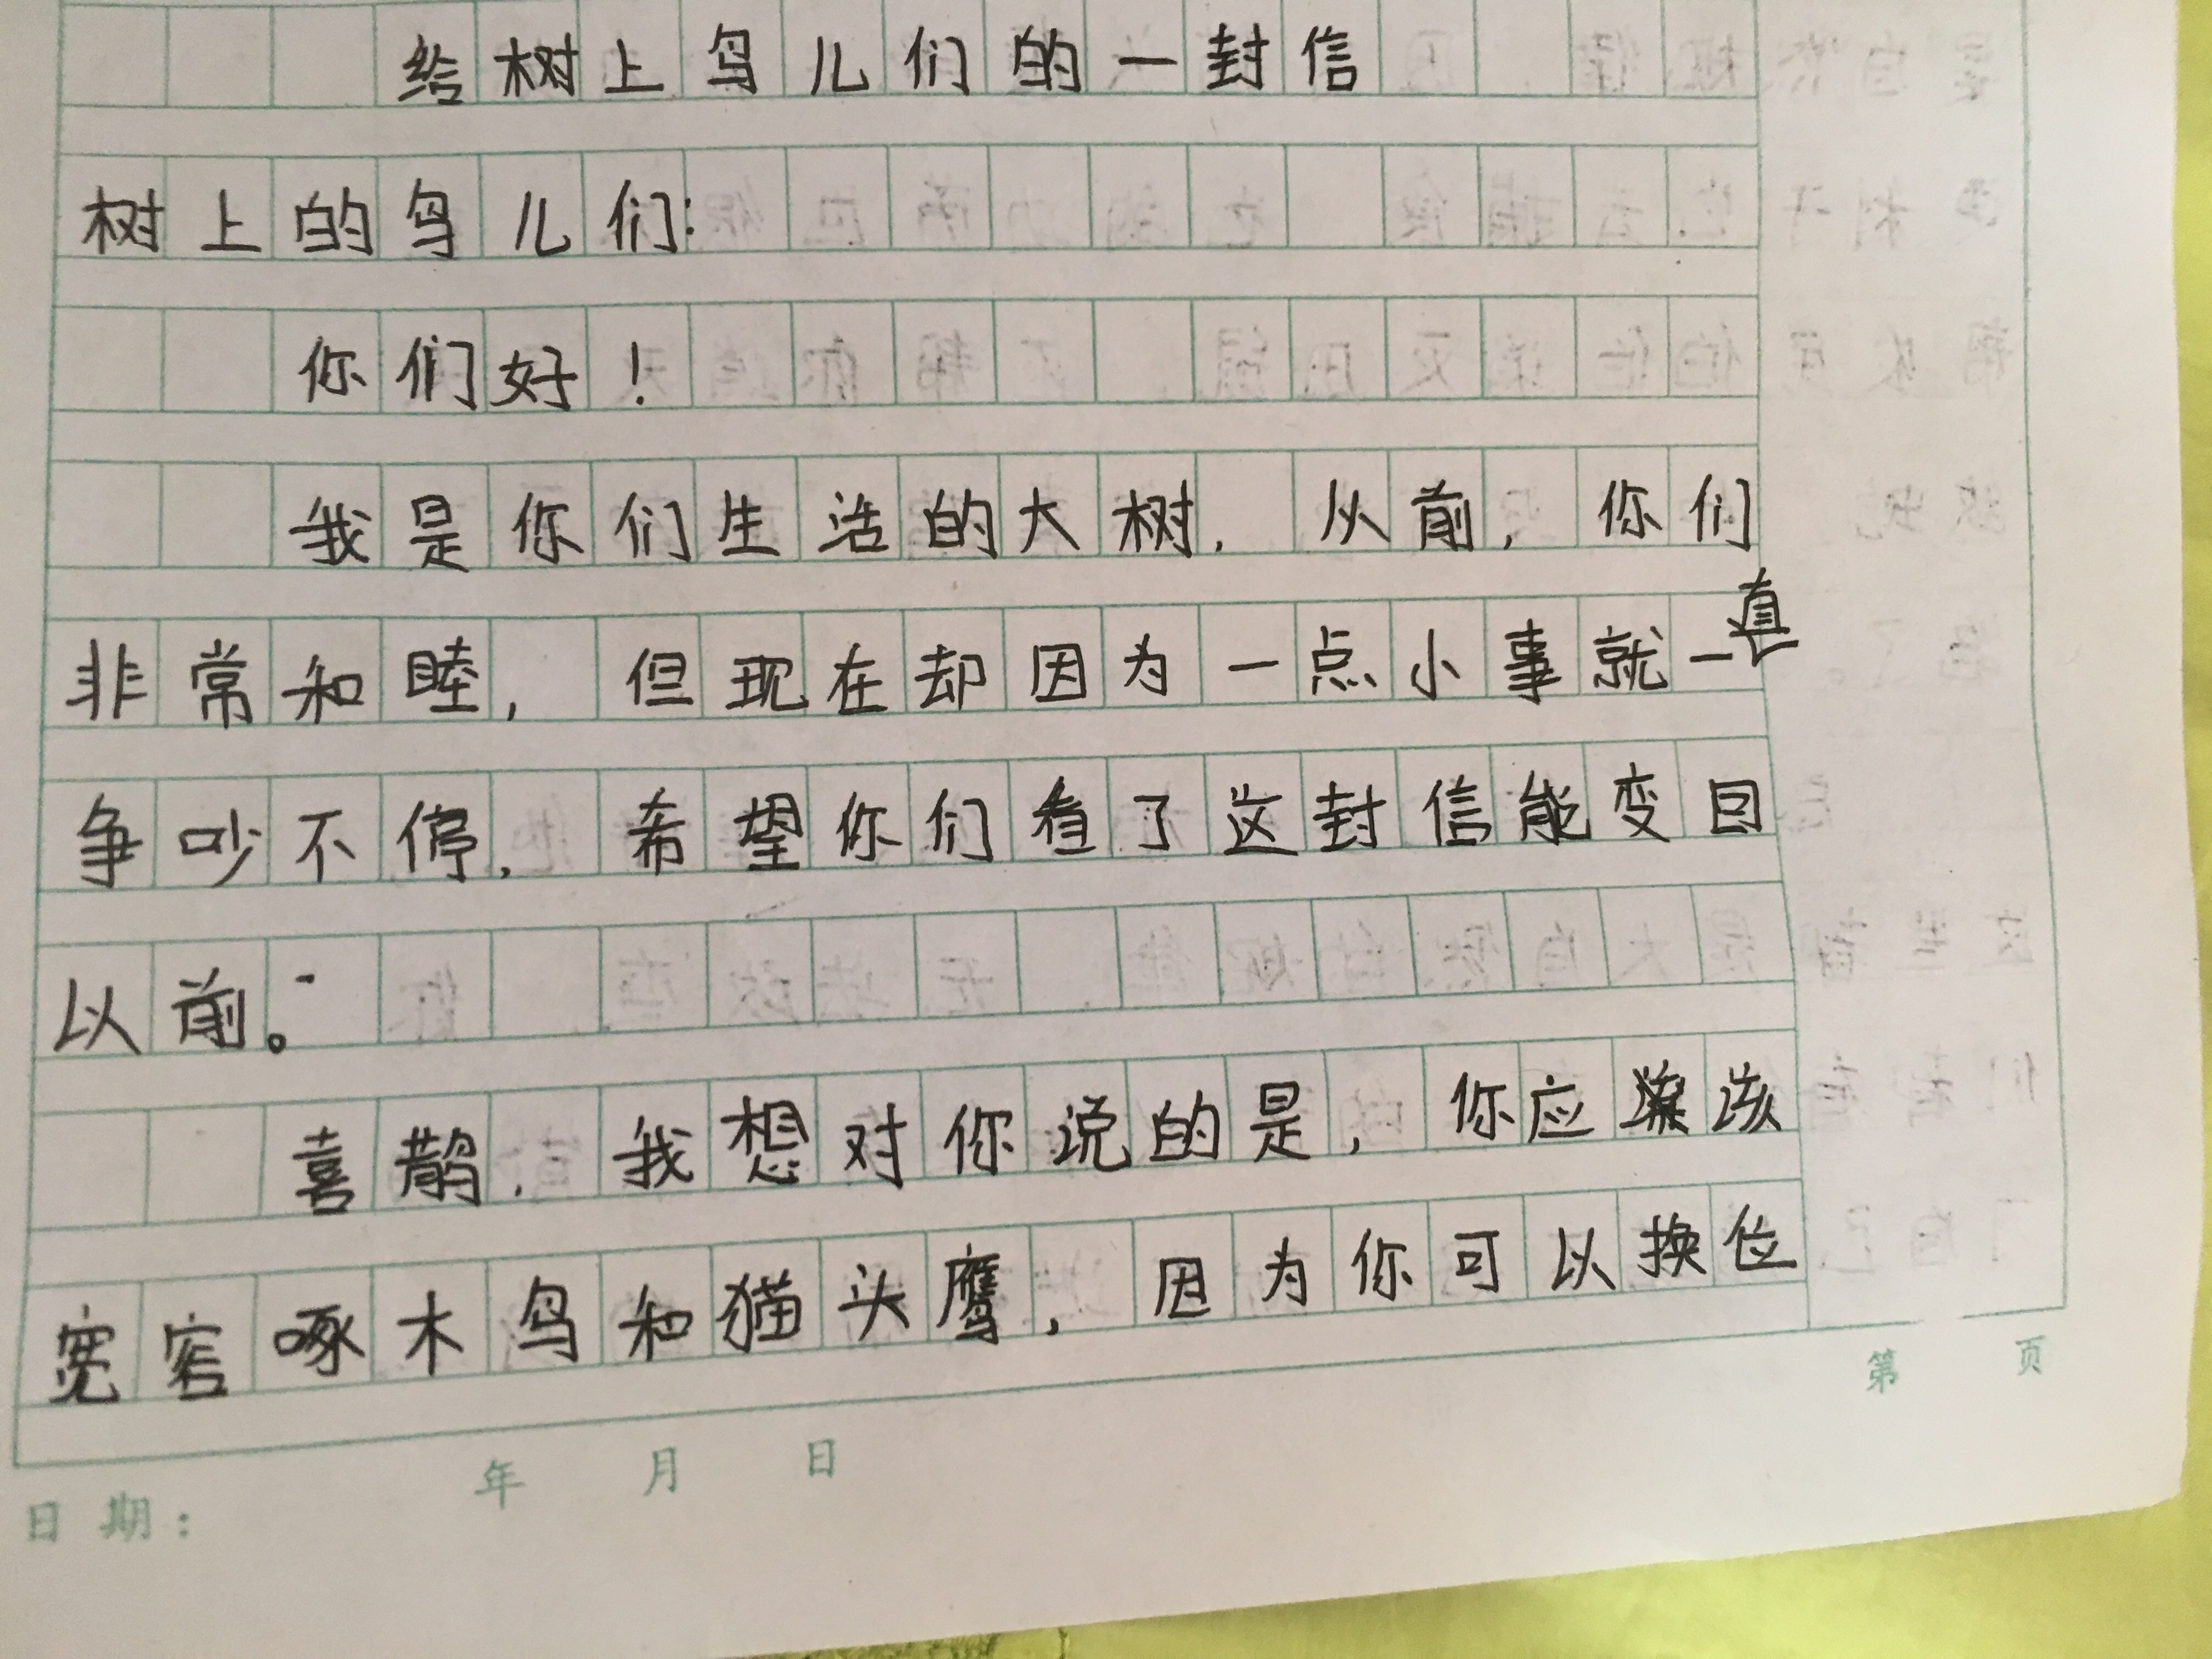 给树上鸟儿们的一封信
树上的鸟儿们:
你们好！
我是你们生活的大树，从前，你们
非常和睦，但现在却因为一点小事就一直
争吵不停，希望你们看了这封信能变回
以前。
喜鹊，我想对你说的是，你应该
宽容啄木鸟和猫头鹰，因为你可以换位
第 页
日期： 年 月 日